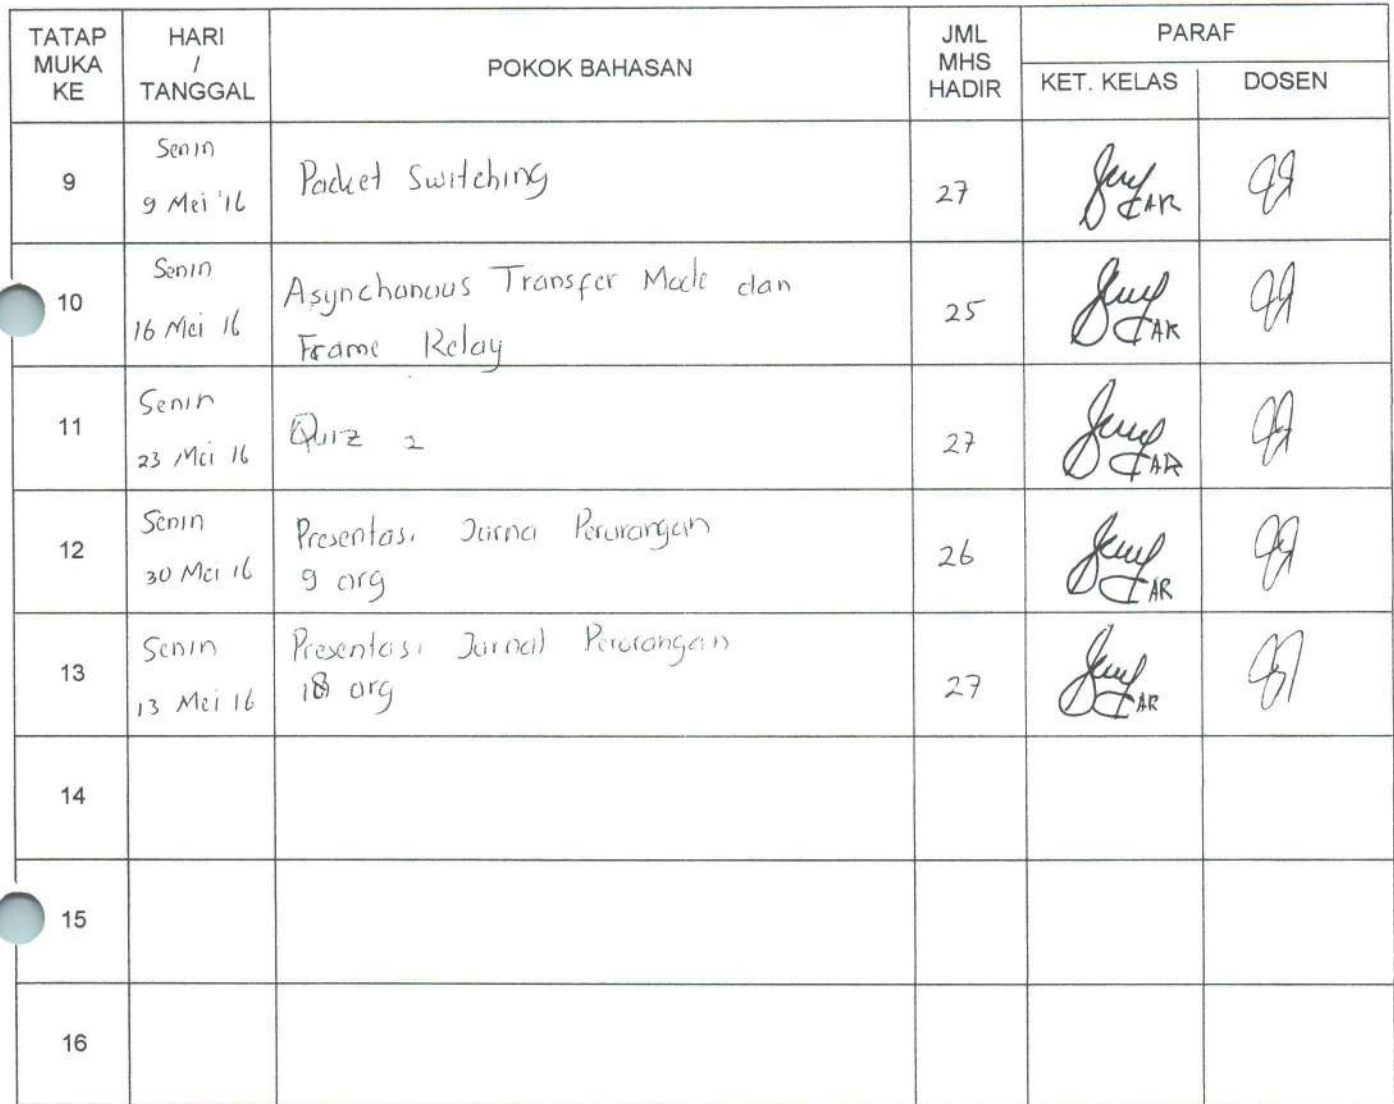 TATAP
MUKA
KE
HARI
/
TANGGAL
POKOK BAHASAN
JML
MHS
HADIR
PARAF
KET. KELAS
DOSEN
9
Senin
9 Mei '16
Packet Switching
27
10
Senin
16 Mei 16
Asynchonous Transfer Mode dan
Frame Relay
25
11
Senin
23 Mei 16
Quiz 2
27
12
Senin
30 Mei 16
Presentasi Jurna Perorangan
9 org
26
13
Senin
13 Mei 16
Presentasi Jurnal Perorangan
18 org
27
14
15
16